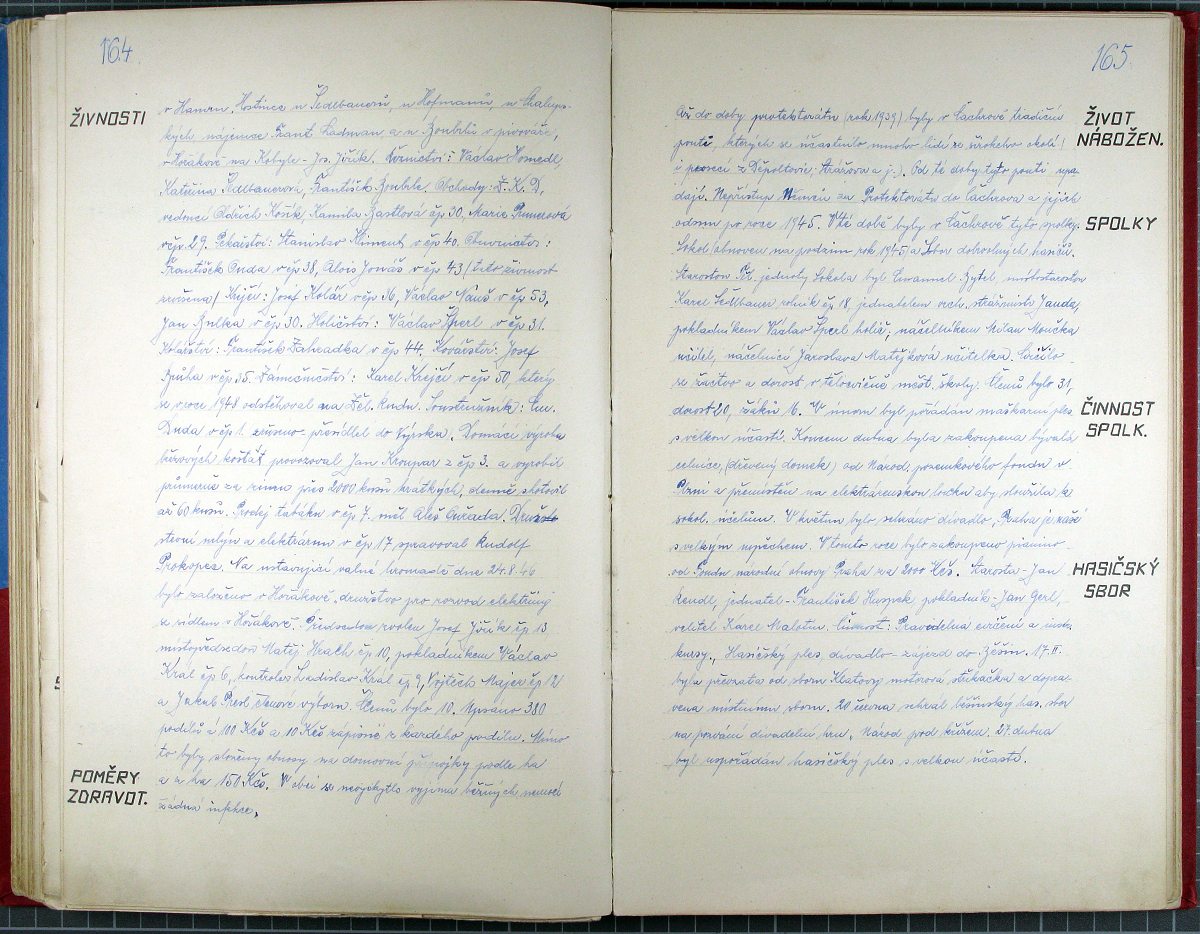 164
ŽIVNOSTI
v Hamru, Hostince u Šedlbauerů, u Hofmanů, u Chalups-
kých nájemce Frant. Ladman a u Boublů v pivováře,
v Hořákově na Kobyle - Jos. Jiřík. Řeznictví: Václav Homedl,
Kateřina Sedlbauerová, František Boubel. Obchody: Ž. K. D.
vedoucí Oldřich Košík, Kamila čp 30. Marie
v čp. 29. Pekařství: Stanislav Kliment v čp 40. Obuvnictví:
František Duda v čp 38, Alois Jonáš v čp 43 /tato živnost
zrušena/ Krejčí: Josef Kolář v čp 16, Václav v čp 53,
Jan v čp 30. Holičství: Václav Šperl v čp 31.
Kolářství: František Zahradka v čp 44. Kovářství: Josef
v čp 35. Zámečnictví: Karel Krejčí v čp 50, který
se v roce 1948 odstěhoval na Žel. Rudu. Soustružník: Em.
Duda v čp 1. zrušeno - přesídlel do Výrska. Domácí výrobu
březových košťat provozoval Jan Kroupar z čp 3. a vyrobil
průměrně za zimu přes 2000 kusů krátkých, denně zhotovil
až 60 kusů. Prodej tabáku v čp 7. měl Aleš Družs
stevní mlýn a elektrárnu v čp 17 spravoval Rudolf
Prokopec. Na ustavující valné hromadě dne 24.8.46
bylo založeno v Hořákově družstvo pro rozvod elektřiny
se sídlem v Hořákově. Předsedou zvolen Josef Jiřík čp 13
místopředsedou Matěj Hrach čp 10, pokladníkem Václav
Král čp 6, kontrolor Ladislav Král čp 9, Vojtěch Majer čp 12
a Jakub členové výboru. Členů bylo 10. Upsáno 380
podílů á 100 Kčs a 10 Kčs zápisné z každého podílu. Mimo
to byly složeny obnosy na domovní přípojky podle ha
a z ha 150 Kčs. V obci se nevyskytla vyjma běžných nemocí
žádná infekce.
POMĚRY
ZDRAVOT.
165
ŽIVOT
NÁBOŽEN.
Až do doby protektorátu (rok 1939) byly v Čachrově tradiční
poutě, kterých se účastnilo mnoho lidí ze širokého okolí /
i procesí z Děpoltovic, Strážova a j./. Od té doby tyto poutě upa-
dají. Nepřístup Němců za Protektorátu do Čachrova a jejich
odsun po roce 1945. V té době byly v Čachrově tyto spolky:
SPOLKY
Sokol /obnoven na podzim rok 1945/ a Sbor dobrovolných hasičů.
Starostou Těl. jednoty Sokola byl Emanuel Zytel, místostarostou
Karel Sedlbauer rolník čp 18 jednatelem vrch. strážmistr Janda,
pokladníkem Václav Šperl holič, náčelníkem Milan Moučka
učitel, náčelnicí Jaroslava Matějková učitelka. Cvičilo
se žactvo a dorost v tělocvičně měst. školy. Členů bylo 31,
dorost 20, žáků 16. V únoru byl pořádán maškarní ples
ČINNOST
SPOLK.
s velkou účastí. Koncem dubna byla zakoupena bývalá
celnice, (dřevený domek) od Národ. pozemkového fondu v
Plzni a přemístěn na elektrárenskou louku aby sloužila k
sokol. účelům. V květnu bylo sehráno divadlo „Praha je naše
s velkým úspěchem. V tomto roce bylo zakoupeno pianino
od Fondu národní obnovy Praha za 2000 Kčs. Starosta - Jan
HASIČSKÝ
SBOR
Rendl, jednatel - František pokladník - Jan Gerl,
velitel Karel Malotin. Činnost: Pravidelná cvičení a
kursy. Hasičský ples, divadlo - zájezd do Běšin. 17.II.
byla převzata od sboru Klatovy motorová stříkačka a dopra-
vena místnímu sboru. 20 června sehrál běšinský has. sbor
na pozvání divadelní hru „Národ pod křížem. 27. dubna
byl uspořádán hasičský ples s velkou účastí.